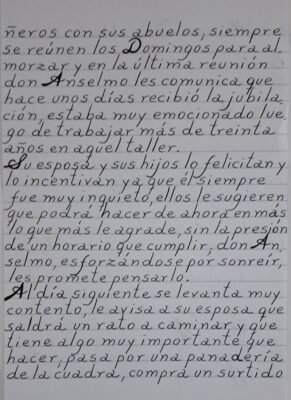 ñeros con sus abuelos, siempre
se reúnen los Domingos para al
morzar y en la última reunión
don Anselmo les comunica que
hace unos días recibió la jubila
ción, estaba muy emocionado lue
go de trabajar más de treinta
años en aquel taller.
Su esposa y sus hijos lo felicitan y
lo incentivan ya que él siempre
fue muy inquieto, ellos le sugieren
que podrá hacer de ahora en más
lo que más le agrade, sin la presión
de un horario que cumplir, don An
selmo, esforzándose por sonreír,
les promete pensarlo.
Al día siguiente se levanta muy
contento, le avisa a su esposa que
saldrá un rato a caminar y que
tiene algo muy importante que
hacer, pasa por una panadería
de la cuadra, compra un surtido